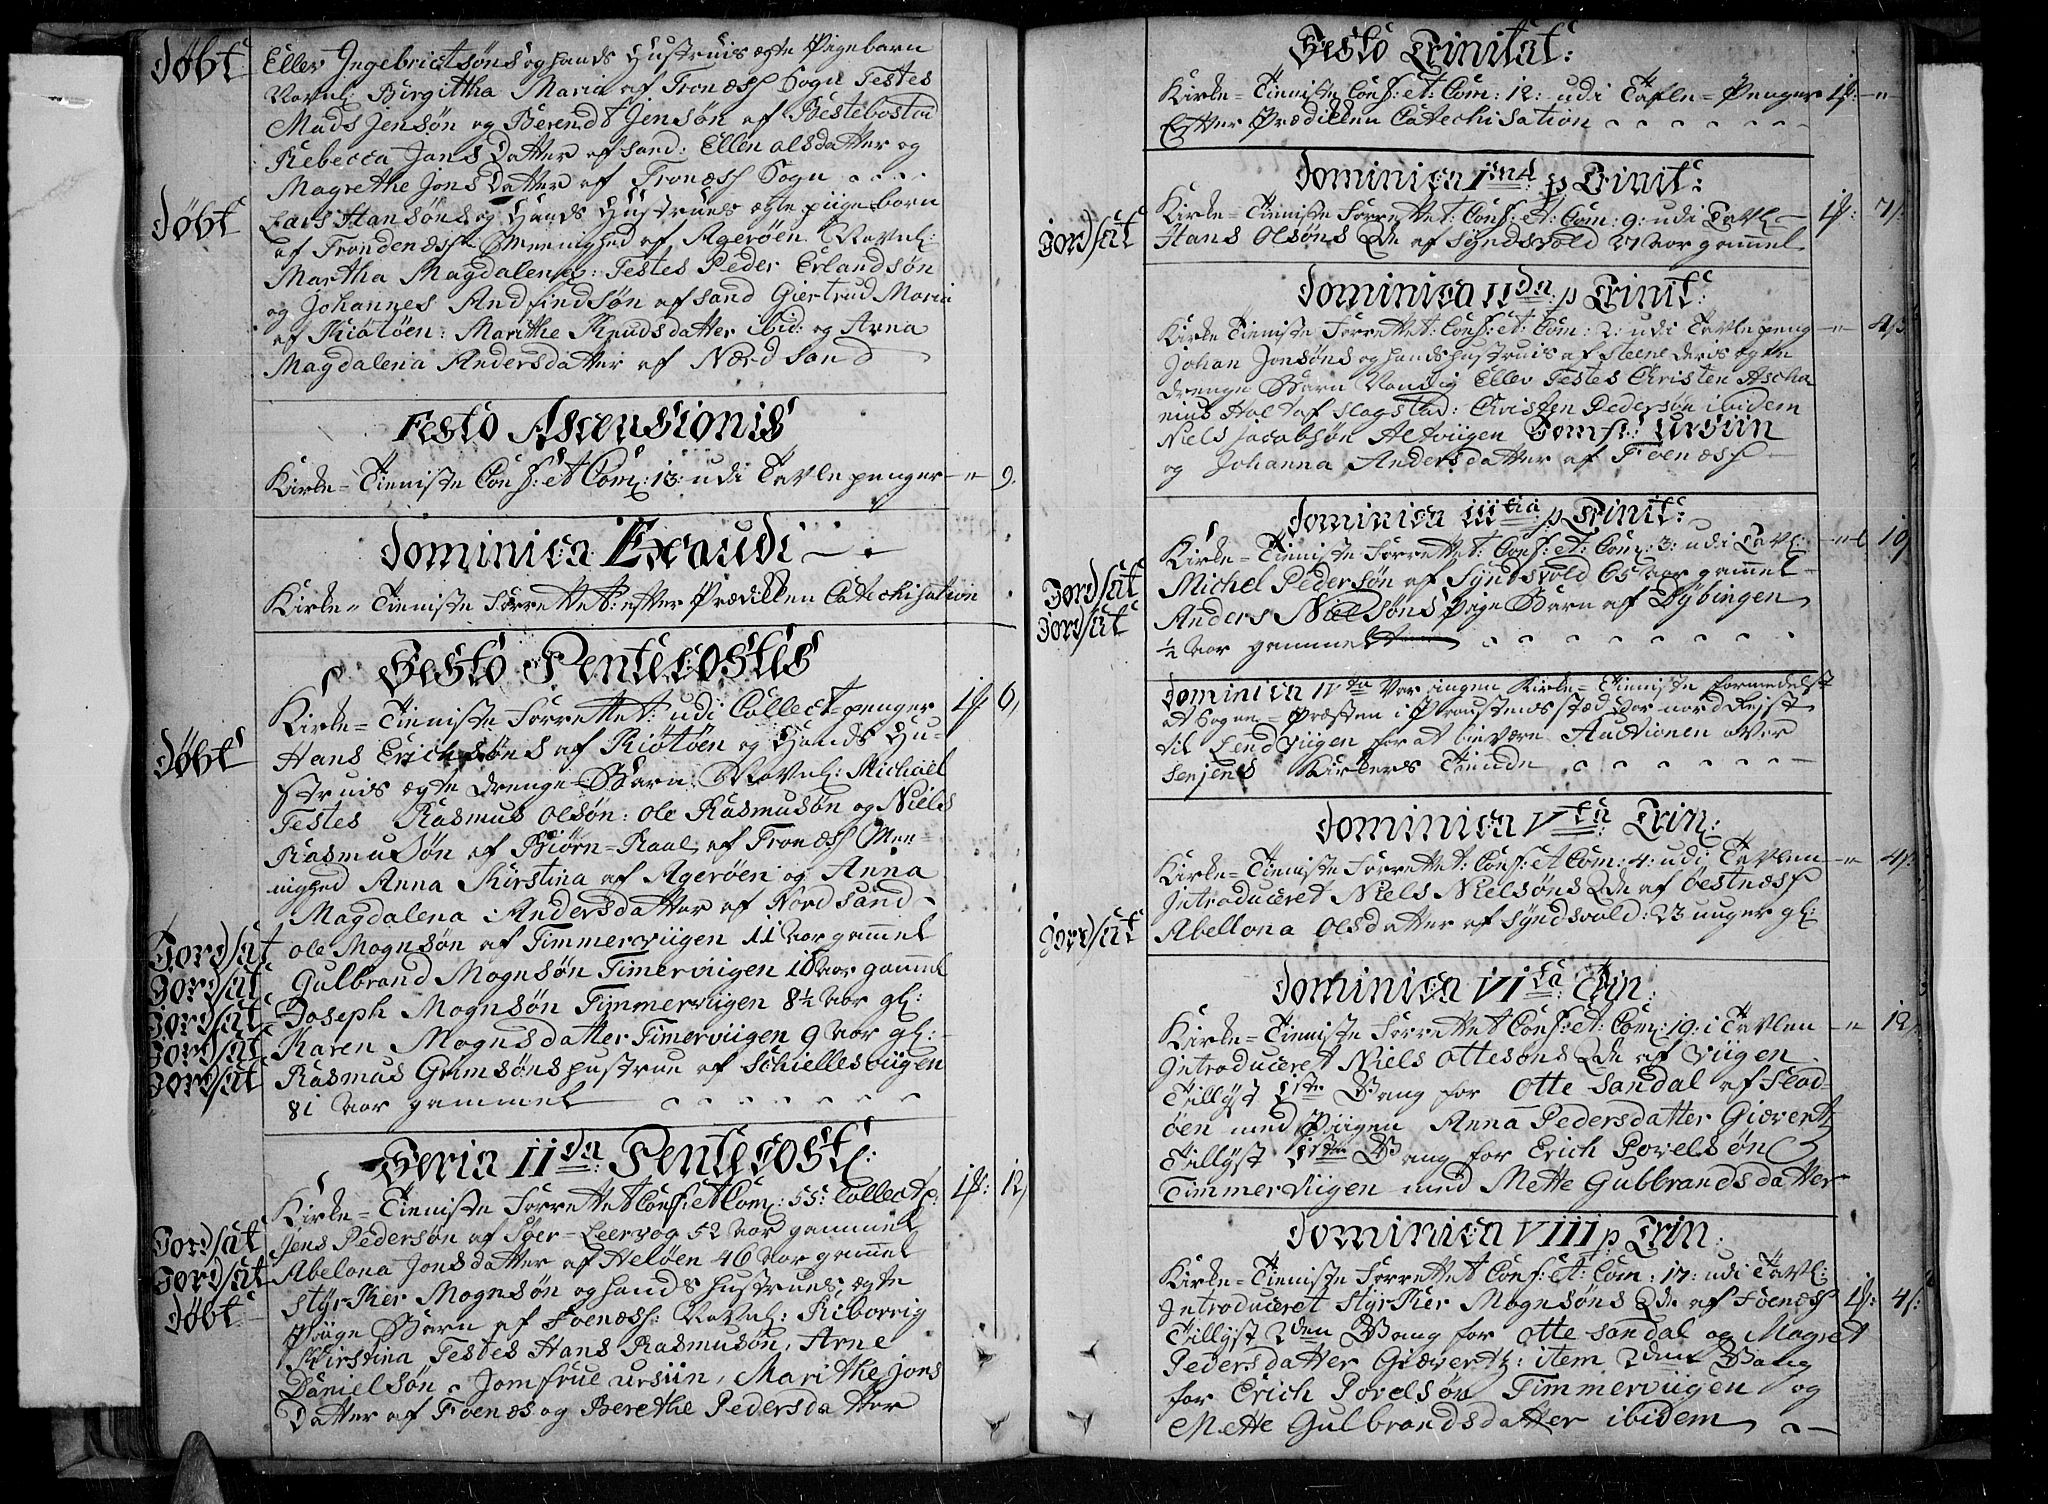 Døbt
Eller Ingebrictsøns og hands Hustrues egte Pigebarn
Navnl: Birgitha Maria af Tronæss Sogn Testes
Mads Jensøn og Berendt Jensøn af Bestebostad
Rebecca Jans Datter af Sand: Ellen Olsdatter og
Magrethe Jons Datter af Tronæss Sogn
Døbt
Lars Hansøns og Hands Hustrues egte piigebarn
af Trondenæss Meenighed af Agerøen Navnl:
Martha Magdalena: Testes Peder Erlandsøn
og Johannes Andfindsøn af Sand Giertrud Maria
af Kiøtøen: Marithe Knudsdatter ibid: og Arna
Magdalena Andersdatter af Nordsand
Festo Ascensionis
Kirke-Tieniste Conf: et Com: 13: udi Tavlepenger - " 9.
Dominica Exaudi
Kirke-Tieniste Forrettet: efter Prædikken Catechisation
Festo Pentecostes
Kirke-Tieniste Forrettet: udi Collect-penger 1 6
Døbt
Hans Erichsøns af Kiøtøen og Hands Hu-
strues egte drenge-Barn: Navnl: Michael
Testes Rasmus Olsøn: Ole Rasmusøn og Niels
Rasmusøn af Biørn-Raae af Tronæss Mee-
nighed Anna Kirstina af Agerøen og Anna
Magdalena Andersdatter af Nordsand
Jordsat
Ole Mognsøn af Timmerviigen 11 Aar gammel
Jordsat
Gulbrand Mognsøn Timerviigen 10 Aar gammel
Jordsat
Joseph Mognsøn Timmerviigen 8½ Aar gl:
Jordsat
Karen Mognsdatter Timerviigen 9 Aar gl:
Jordsat
Rasmus Grimsøns Hustrue af Schiellesviigen
81 Aar gammel
Feria IIda Pentecost:
Kirke-Tieniste Forrettet Conf: et Com: 55: Collect: 1 12
Jordsat
Jens Pedersøn af Søer-Leervog 52 Aar gammel
Jordsat
Abelona Jonsdatter af Heløen 46 Aar gammel
Døbt
Styrker Mognsøn og hands Hustrues egte
Piige Barn af Foenæss: Navnl: Riborrig
Kirstina Testes Hans Rasmusøn, Arne
Danielsøn. Jomfrue Ursiin, Marithe Jons
Datter af Foenæs og Berethe Pedersdatter
Festo Trinitat:
Kirke-Tieniste Conf: et: Com: 12: udi Tafle-Penger 1 - "
Efter Prædikken Catechisation
Dominica Ima p Trinit:
Kirke-Tieniste Forrettet: Conf: et: Com: 9: udi Tavl 1 7
Jordsat
Hans Olsøns Qde af Syndsvold 27 Aar gammel
Dominica IIda p Trinit:
Kirke Tieniste Forrettet: Conf: et: Com: 2: udi Tavlepeng - " 4
Johan Jonsøns og hands hustrues af Steene deris egte
drenge Barn Navnlig Eller Testes Christen Ascha
nius Holt af Slagstad: Christen Pedersøn ibidem
Niels Jacobsøn Altviigen Jomf: Ursiin
og Johanna Andersdatter af Foenæss
Dominica IIItia p Trinit:
Kirke-Tieniste Forrettet: Conf: et: Com: 3: udi Tavl: 10
Jordsat
Michel Pedersøn af Syndsvold 65 Aar gammel
Jordsat
Anders Nielsøns Pige Barn af Dybingen
½ Aar gammel
Dominica IVta Var ingen Kirke-Tieniste formedelst
at Sogne-Præsten i Proustens stæd Var nord Rejst
til Lendviigen for at bevære Auctionen over
Senjens Kirkers Tiende
Dominica Vta Trin:
Kirke-Tieniste Forrettet: Conf: et Com: 4: udi Tavlen - " 4
Introduceret Niels Nielsøns Qde af Østnæss
Jordsat
Abellona Olsdatter af Syndsvold: 23 uuger gl:
Dominica VIta Trin:
Kirke-Tieniste Forrettet Conf: et: Com: 19: i Tavlen - " 12
Introduceret Niels Ottesøns Qde af Viigen
Tillyst 1ste Gang for Otte Sandal af Flad-
øen med Piigen Anna Pedersdatter Giævertz
Tillyst 1ste Gang for Erich Povelsøn
Timmerviigen med Mette Gulbrandsdatter
Dominica VIII p Trin:
Kirke-Tieniste Forrettet Conf: et: Com: 17: udi Tavl:
Introduceret Styrker Mognsøns Qde af Foenæss 1 4
Tillyst 2den Gang for Otte Sandal og Magret
Pedersdatter Giævertz: item 2den Gang
for Erich Povelsøn Timmerviigen og
Mette Gulbrandsdatter ibidem